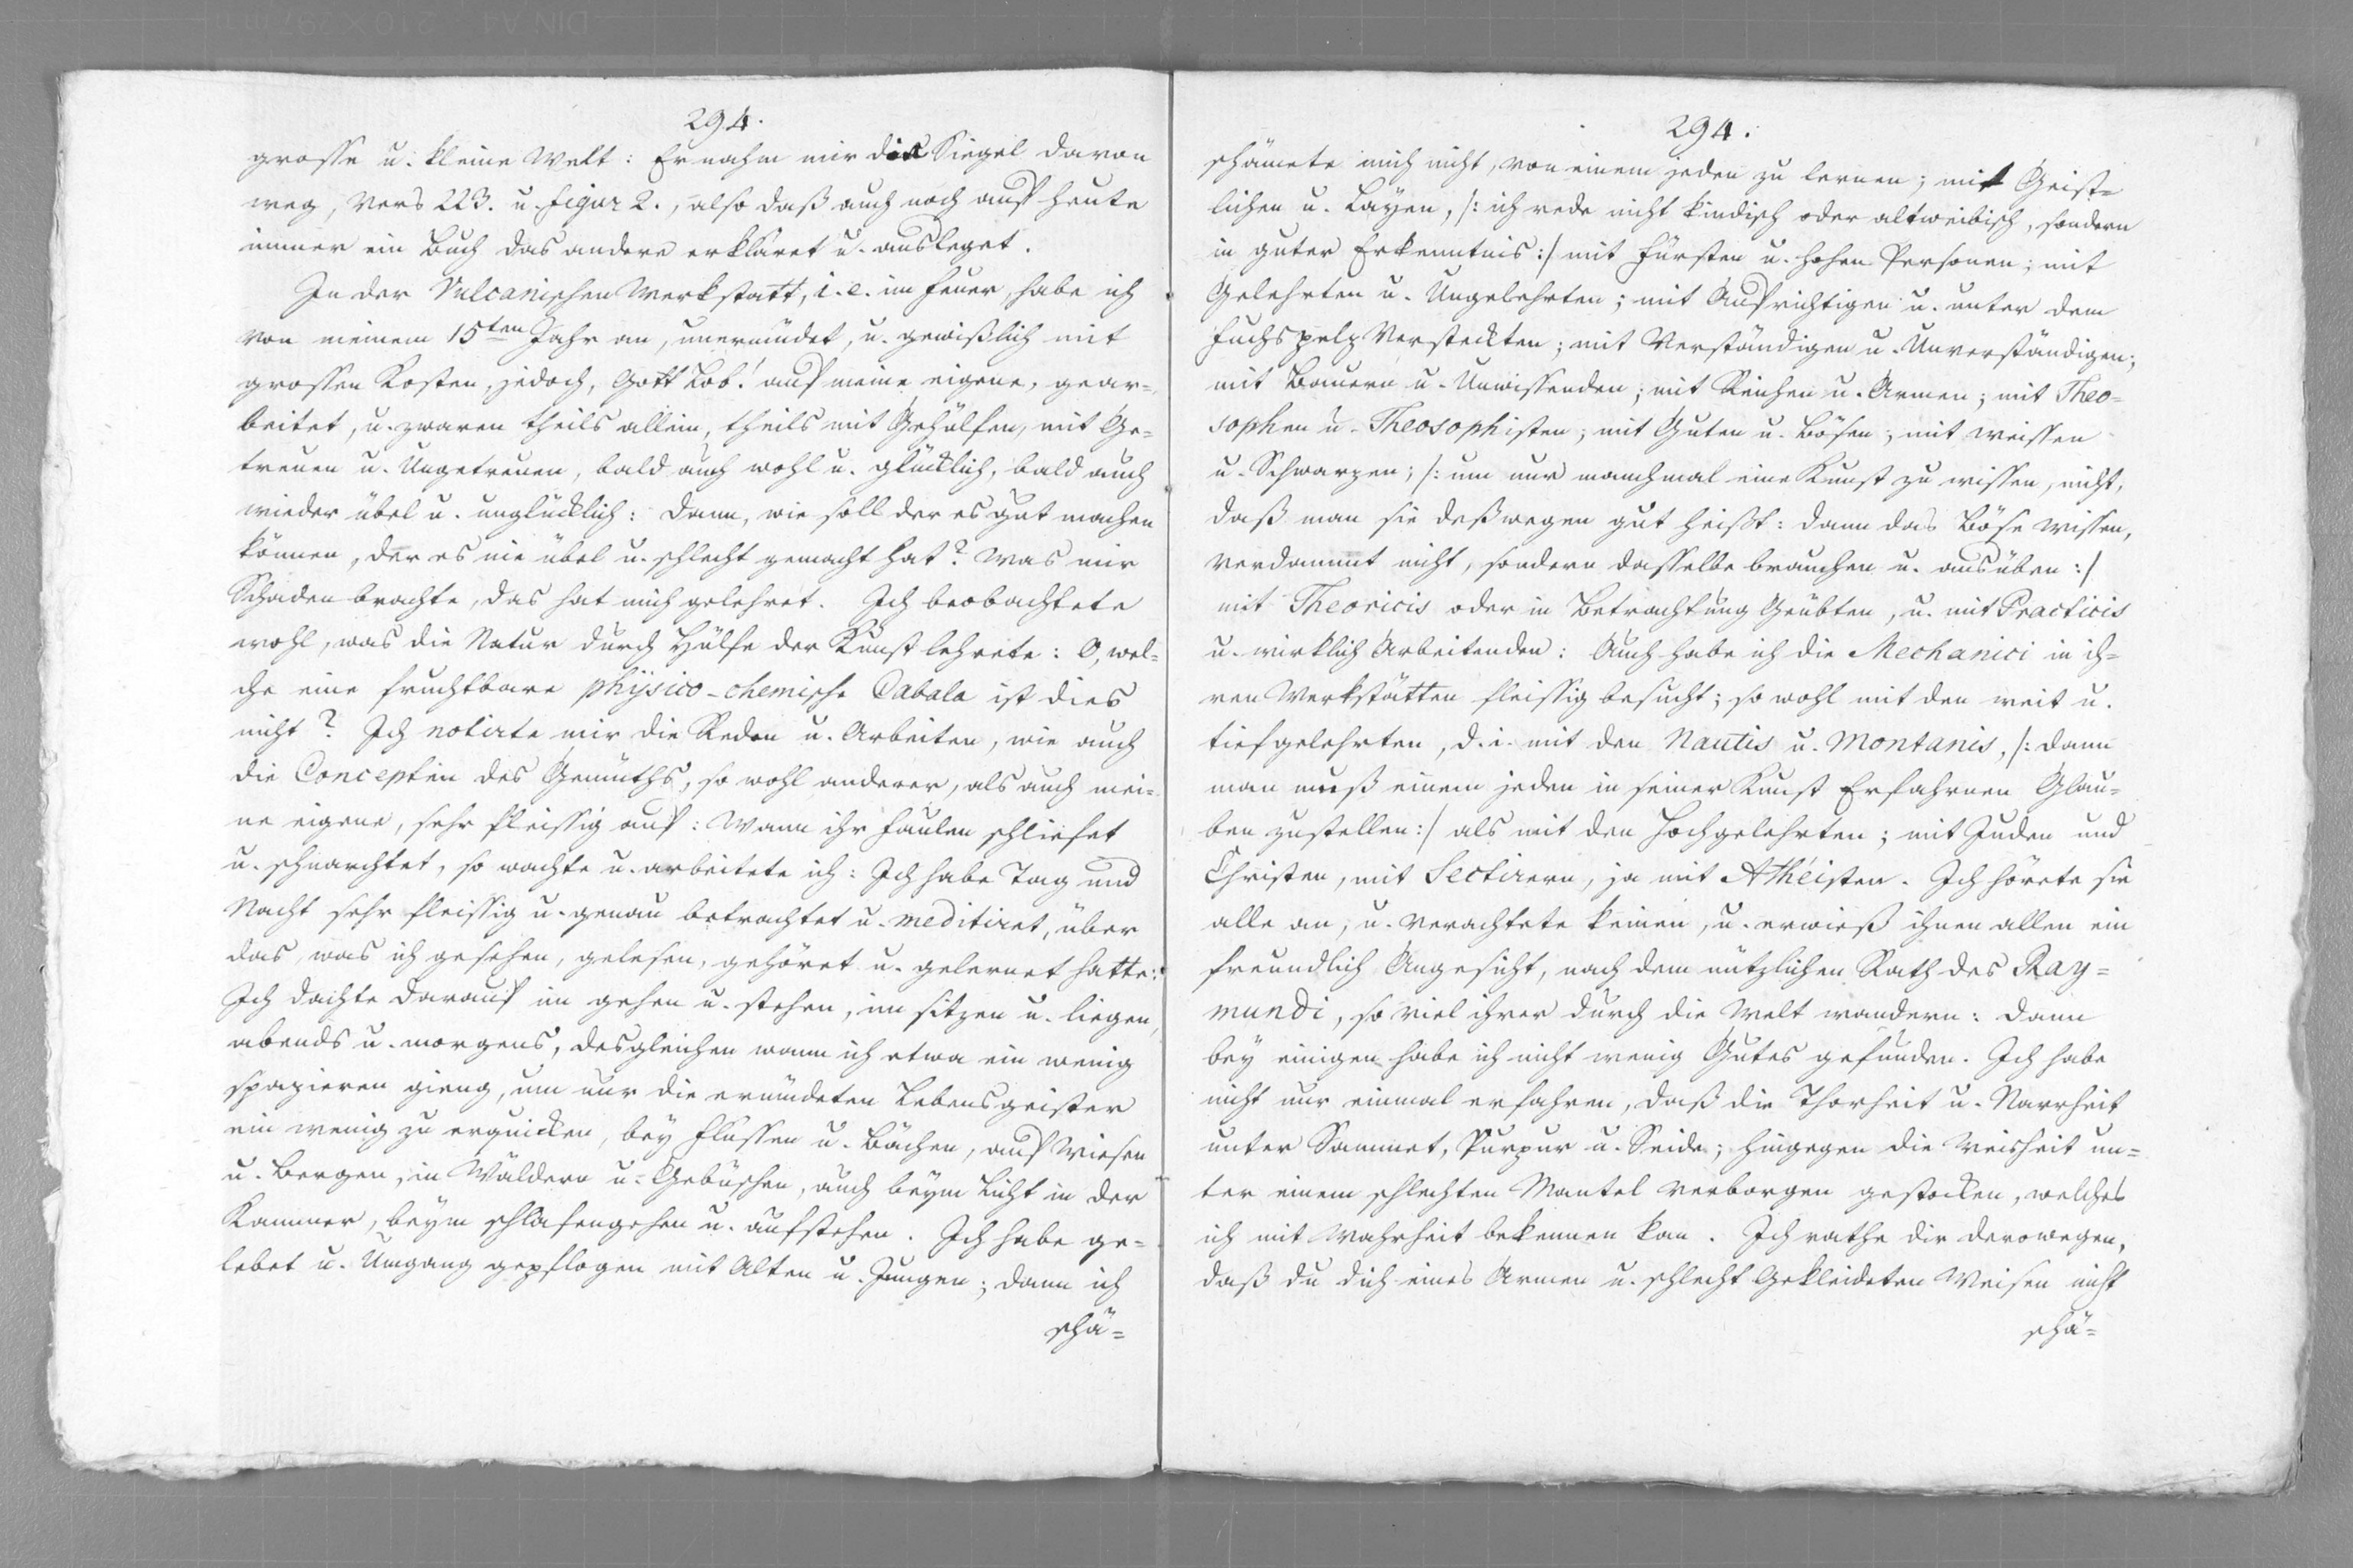 294.
grosse u. kleine Welt: Er nahm mir die Siegel davon
weg, Vers 223. u. figur 2., also daß auch noch auf heute
immer ein Buch das andere erkläret u. ausleget.
In der Vulcanischen Werkstatt, i. e. im Feuer, habe ich
von meinem 15ten Jahr an, unermüdet, u. gewißlich mit
grossen Kosten, jedoch, Gott Lob! auf meine eigene, gear=
beitet, u. zwaren theils allein, theils mit Gehülfen, mit Ge=
treuen u. Ungetreuen, bald auch wohl u. glücklich, bald auch
wieder übel u. unglücklich: Dann, wie soll der es gut machen
können, der es nie übel u. schlecht gemacht hat? Was mir
Schaden brachte, das hat mich gelehret. Ich beobachtete
wohl, was die Natur durch Hülfe der Kunst lehrete: O, wel=
che eine fruchtbare physico-chemische Cabala ist dies
nicht? Ich notirte mir die Reden u. Arbeiten, wie auch
die Concepten des Gemüths, so wohl anderer, als auch mei=
ne eigene, sehr fleissig auf: Wann ihr Faulen schliefet
u. schnarchtet, so wachte u. arbeitete ich: Ich habe Tag und
Nacht sehr fleissig u. genau betrachtet u. meditiret, über
das, was ich gesehen, gelesen, gehöret u. gelernet hatte:
Ich dachte darauf im gehen u. stehen, im sitzen u. liegen,
abends u. morgens, desgleichen wann ich etwa ein wenig
spazieren gieng, um nur die ermüdeten Lebensgeister
ein wenig zu erquicken, bey Flüssen u. Bächen, auf Wiesen
u. Bergen, in Wäldern u. Gebüschen, auch beym Licht in der
Kammer, beym schlafengehen u. aufstehen. Ich habe ge=
lebet u. Umgang gepflogen mit Alten u. Jungen; dann ich
schä=
294.
schämete mich nicht, von einem jeden zu lernen; mit Geist=
lichen u. Layen, /: ich rede nicht kindisch oder altweibisch, sondern
in guter Erkenntnis :/ mit Fürsten u. hohen Personen; mit
Gelehrten u. Ungelehrten; mit Aufrichtigen u. unter dem
Fuchspelz Versteckten; mit Verständigen u. Unverständigen;
mit Bauern u. Unwissenden; mit Reichen u. Armen; mit Theo=
sophen u. Theosophisten; mit Guten u. Bösen; mit weissen
u. Schwarzen; /: um nur manchmal eine Kunst zu wissen, nicht,
daß man sie deßwegen gut heißt: dann das Böse wissen,
verdammt nicht, sondern dasselbe brauchen u. ausüben :/
mit Theoricis oder in Betrachtung Geübten, u. mit Practicis
u. wirklich Arbeitenden: Auch habe ich die Mechanici in ih=
ren Werkstätten fleissig besucht; so wohl mit den weit u.
tiefgelehrten, d. i. mit den Nautis u. Montanis, /: dann
man muß einem jeden in seiner Kunst Erfahrnen Glau=
ben zustellen :/ als mit den Hochgelehrten; mit Juden und
Christen, mit Sectirern, ja mit Atheisten. Ich hörete sie
alle an, u. verachtete keinen, u. erwieß ihnen allen ein
freundlich Angesicht, nach dem nützlichen Rath des Ray=
mundi, so viel ihrer durch die Welt wandern: dann
bey einigen habe ich nicht wenig Gutes gefunden. Ich habe
nicht nur einmal erfahren, daß die Thorheit u. Narrheit
unter Sammet, Purpur u. Seide; hingegen die Weisheit un=
ter einem schlechten Mantel verborgen gestocken, welches
ich mit Wahrheit bekennen kan. Ich rathe dir derowegen,
daß du dich eines Armen u. schlecht Gekleideten Weisen nicht
schä=